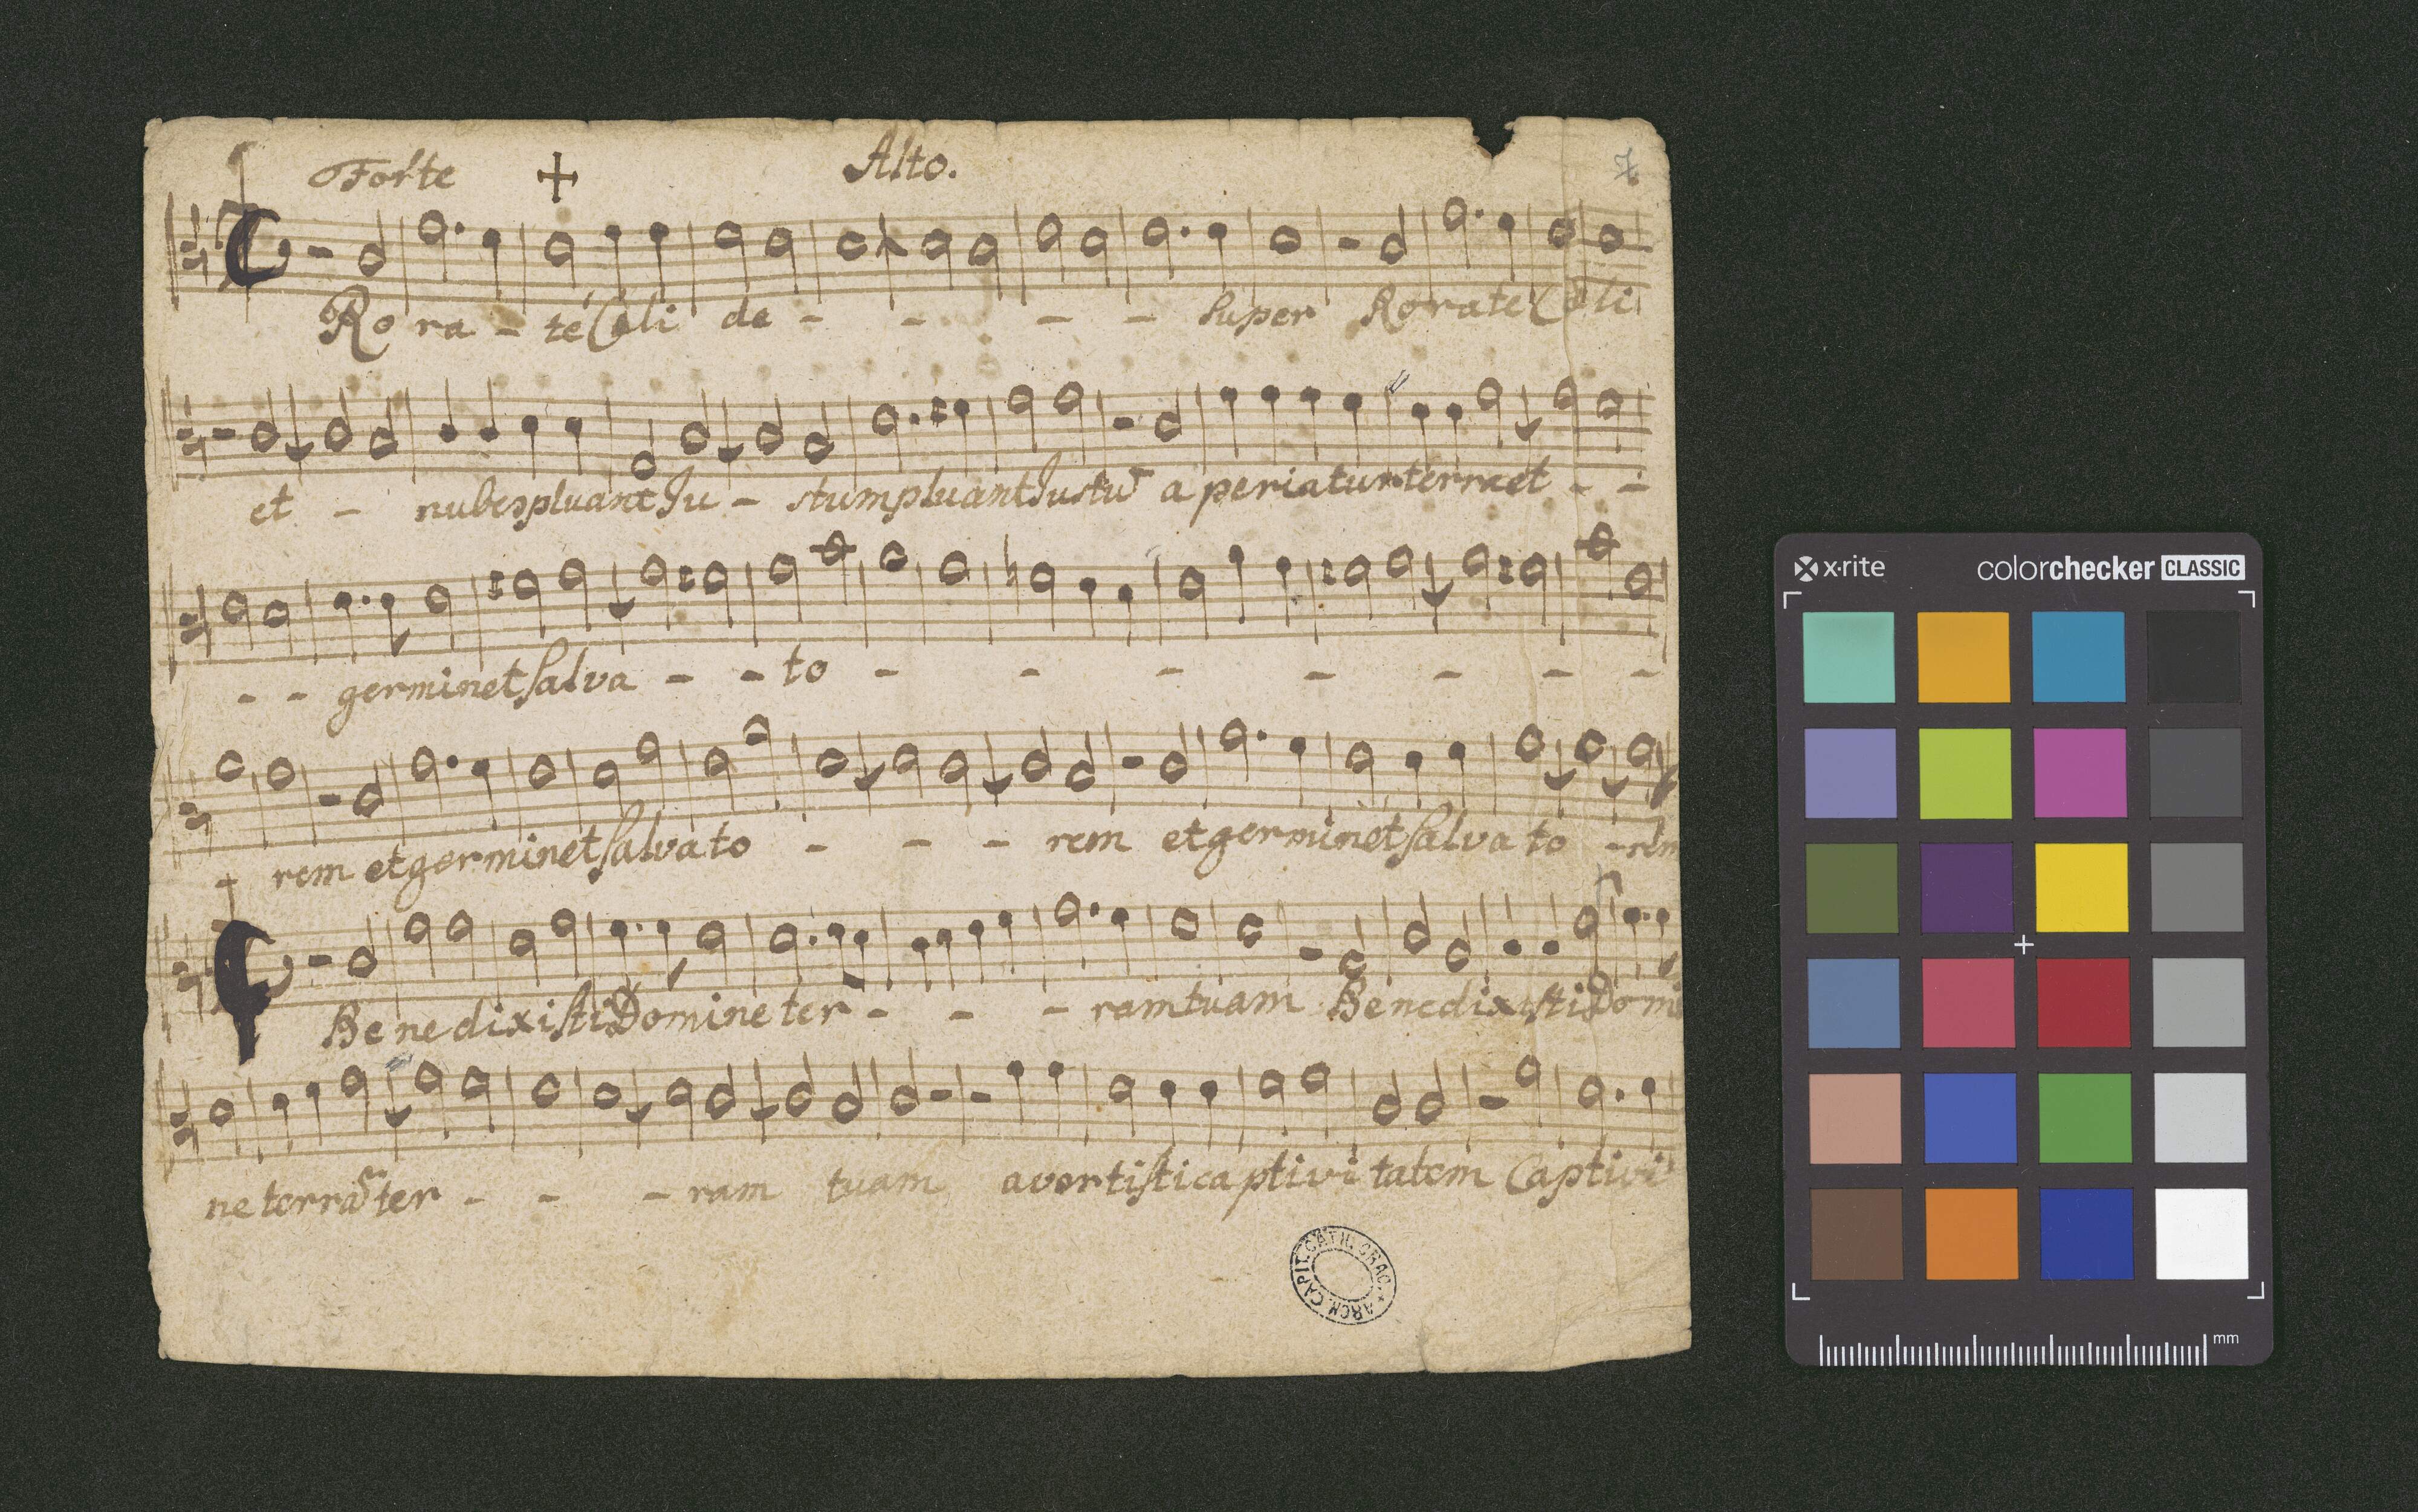 Forte + Alto. 7
Ro ra - te Cæli de - - - - super Rorate Cæli
et - nubes pluant Ju - stum pluant Justū aperiatur terra et - -
- - germinet salva - - to - - - - - - -
- rem et germinet salvato - - - rem et germinet salvato - rem
Benedixisti Domine ter - - - ram tuam Benedixisti Domi
ne terrā ter - - - ram tuam avertisti captivitatem Captivi
ARCH. CAPIT. CATH. CRAC.
x·rite colorchecker CLASSIC
mm